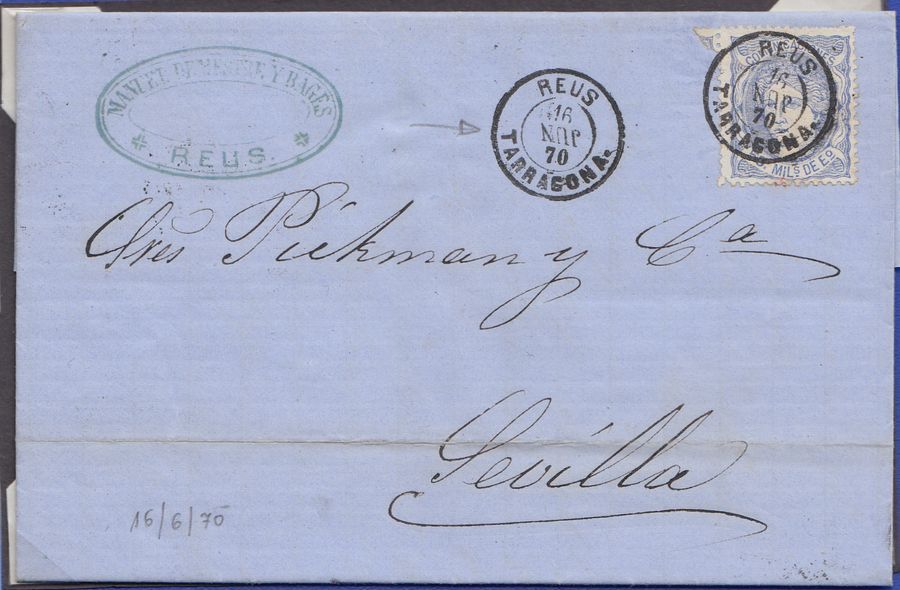 MANUEL DE MESTRE Y BAGÉS
REUS
REUS
16
JUN
70
TARRAGONA.
REUS
16
JUN
70
TARRAGONA.
MILS DE EO
Sres Pickman y Ca
Sevilla
16/6/70